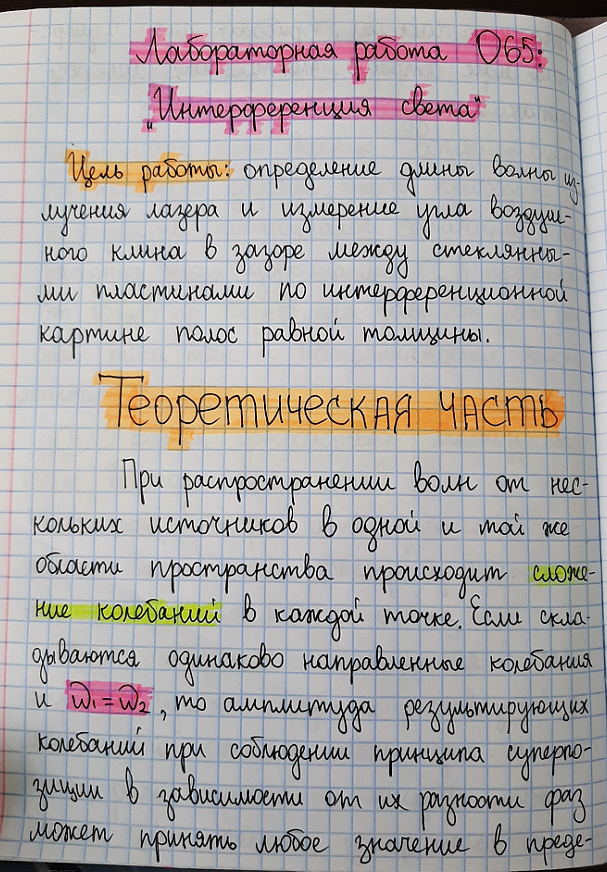 Лабораторная работа О65:
"Интерференция света"
Цель работы: определение длины волны из-
лучения лазера и измерение угла воздуш-
ного клина в зазоре между стеклянны-
ми пластинами по интерференционной
картине полос равной толщины.
Теоретическая часть
При распространении волн от нес-
кольких источников в одной и той же
области пространства происходит сложе-
ние колебаний в каждой точке. Если скла-
дываются одинаково направленные колебания
и ω₁ = ω₂, то амплитуда результирующих
колебаний при соблюдении принципа суперпо-
зиции в зависимости от их разности фаз
может принять любое значение в преде-